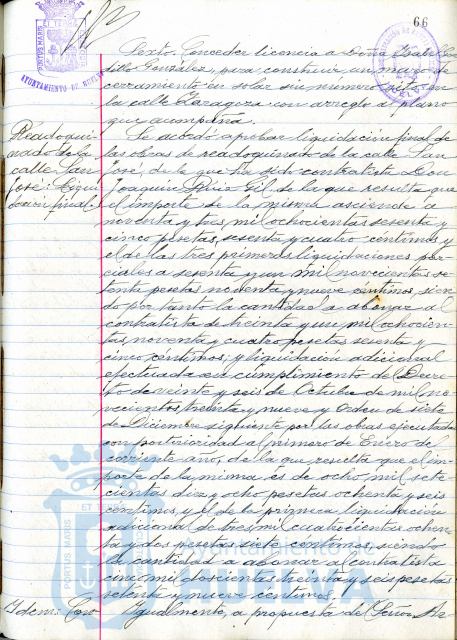 66
PORTUS MARIS
AYUNTAMIENTO DE HUELVA
Sexto. Conceder licencia a Doña Isabel
González, para construir un muro de
cerramiento en solar sin número
la calle Zaragoza con arreglo a plano
que acompaña.
Readoqui-
nado de la
calle San
José: Liqui
dación final.
Se acordó aprobar liquidación final de
las obras de readoquinado de la calle San
José, de la que ha sido contratista Don
Joaquín Gil, de la que resulta que
el importe de la misma asciende a
noventa y tres mil ochocientas sesenta y
cinco pesetas, sesenta y cuatro céntimos y
el de las tres primeras liquidaciones par-
ciales a sesenta y un mil novecientas se-
tenta pesetas noventa y nueve céntimos, sien-
do por tanto la cantidad a abonar al
contratista de treinta y un mil ochocien-
tas, noventa y cuatro pesetas sesenta y
cinco céntimos; y liquidación adicional
efectuada en cumplimiento del Decre-
to de veinte y seis de Octubre de mil no-
vecientos treinta y nueve y Orden de siete
de Diciembre siguiente por las obras ejecutadas
con posterioridad al primero de Enero del
corriente año, de la que resulta que el im-
porte de la misma es de ocho mil sete-
cientas diez y ocho pesetas ochenta y seis
céntimos, y el de la primera liquidación
adicional de tres mil cuatrocientas ochen-
ta y dos pesetas siete céntimos siendo
la cantidad a abonar al contratista
cinco mil doscientas treinta y seis pesetas
setenta y nueve céntimos.
Idem:
Igualmente, a propuesta del Señor Ar-
PORTUS MARIS
Ayuntamiento de
HUELVA